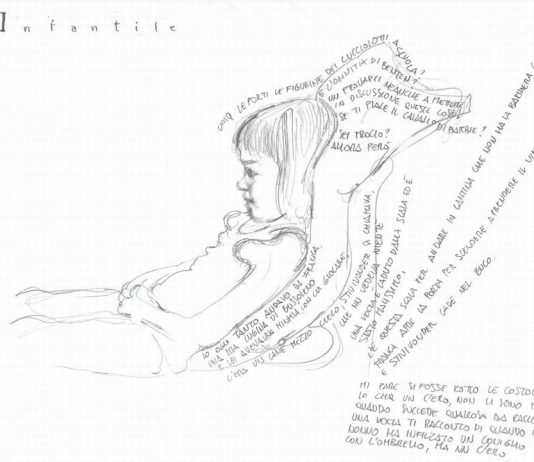 Infantile
COM'È CHE PORTI LE FIGURINE DEI CUCCIOLOTTI A SCUOLA?
E L'OMNITRIX DI BENTEN?
UN PROVARCI NEANCHE A METTERE
IN DISCUSSIONE QUESTE COSE!
SE TI PIACE IL CAVALLO DI BARBIE?
SEI FROCIO?
ALLORA PERÒ
IO OGNI TANTO ANDAVO DA FRANCA,
UNA MIA CUGINA DI BUSSOLENO
E LEI AVEVA UNA MINCHIA CON CUI GIOCARE,
C'ERA UN CANE MEZZO CIECO STIVUONDER SI CHIAMAVA,
CHE UN VEDEVA NIENTE
UNA VOLTA È CADUTO DALLA SCALA ED È
STATO MALISSIMO.
C'È QUESTA SCALA PER ANDARE IN CANTINA CHE NON HA LA RINGHIERA
FRANCA APRE LA PORTA PER SCENDERE A PRENDERE IL VINO
E STIVUONDER CADE NEL BUCO.
MI PARE SI FOSSE ROTTO LE COSTOLE
IO CHE UN C'ERO, NON CI SONO
QUANDO SUCCEDE QUALCOSA DA RACCO
UNA VOLTA TI RACCONTO DI QUANDO
NONNO HA INFILZATO UN CONIGLIO
CON L'OMBRELLO, MA NN C'ERO